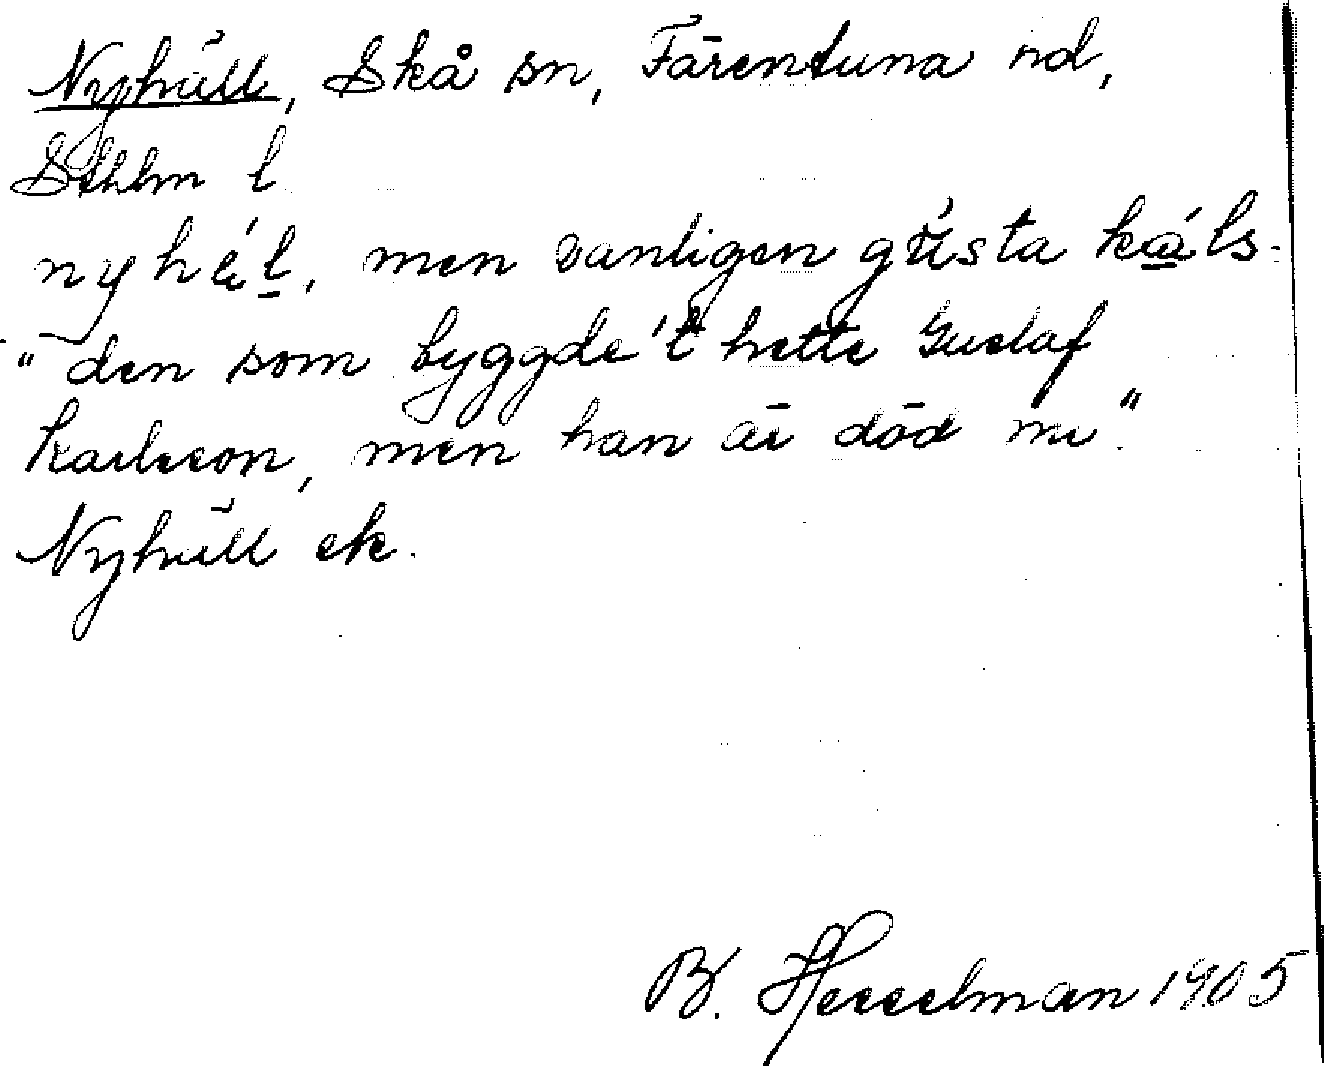 Nyhäll, Skå sn, Färentuna hd,
Sthlm l
nyhä́l, men vanligen gústa káls-
"den som byggde't hette Gustaf
Karlsson, men han är död nu."
Nyhäll ek.
B. Hesselman 1905